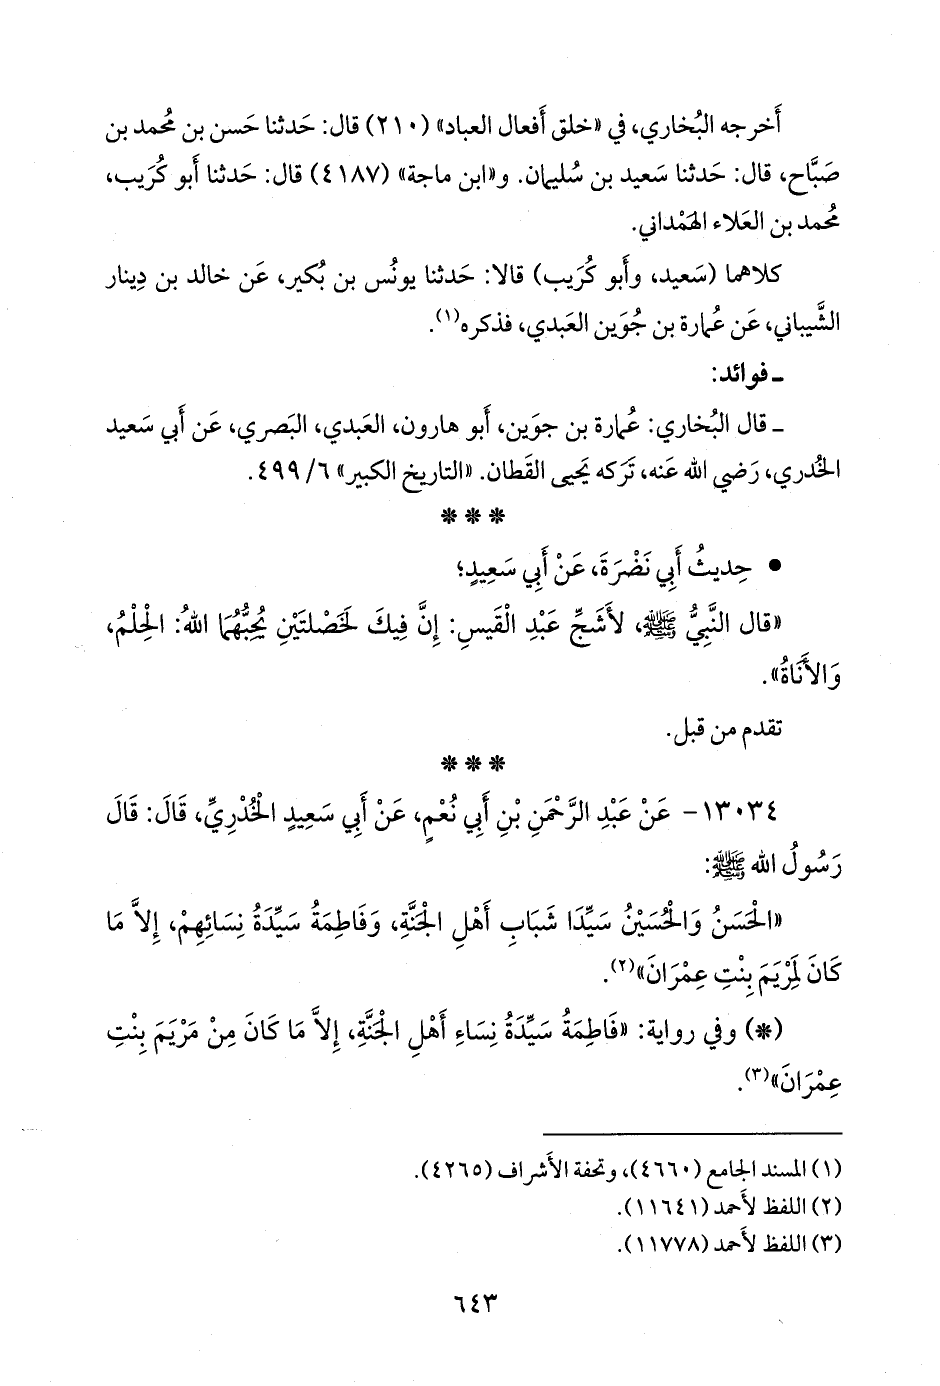 أَخرجه البُخاري، في «خلق أَفعال العباد» (٢١٠) قال: حَدثنا حَسن بن مُحمد بن
صَبَّاح، قال: حَدثنا سَعيد بن سُليمان. و«ابن ماجة» (٤١٨٧) قال: حَدثنا أَبو كُرَيب،
مُحمد بن العَلاء الهَمْداني.
كلاهما (سَعيد، وأَبو كُرَيب) قالا: حَدثنا يونُس بن بُكير، عَن خالد بن دِينار
الشَّيباني، عَن عُمارة بن جُوَين العَبدي، فذكره(١).
ـ فوائد:
ـ قال البُخاري: عُمارة بن جوَين، أَبو هارون، العَبدي، البَصري، عَن أَبي سَعيد
الخُدري، رَضي الله عَنه، تَركه يَحيى القَطان. «التاريخ الكبير» ٦/ ٤٩٩.
* * *
• حِديثُ أَبي نَضْرَةَ، عَنْ أَبي سَعِيدٍ؛
«قال النَّبِيُّ ﷺ، لأَشَجِّ عَبْدِ الْقَيسِ: إِنَّ فِيكَ لَخَصْلتَيْنِ يُحِبُّهُمَا اللهُ: الْحِلْمُ،
وَالأَنَاةُ».
تقدم من قبل.
* * *
١٣٠٣٤- عَنْ عَبْدِ الرَّحْمَنِ بْنِ أَبِي نُعْمٍ، عَنْ أَبِي سَعِيدٍ الْخُدْرِيِّ، قَالَ: قَالَ
رَسُولُ الله ﷺ:
«الْحَسَنُ وَالْحُسَيْنُ سَيِّدَا شَبَابِ أَهْلِ الجَنَّةِ، وَفَاطِمَةُ سَيِّدَةُ نِسَائِهِمْ، إِلاَّ مَا
كَانَ لِمَرْيَمَ بِنْتِ عِمْرَانَ»(٢).
(*) وفي رواية: «فَاطِمَةُ سَيِّدَةُ نِسَاءِ أَهْلِ الجَنَّةِ، إِلاَّ مَا كَانَ مِنْ مَرْيَمَ بِنْتِ
عِمْرَانَ»(٣).
(١) المسند الجامع (٤٦٦٠)، وتحفة الأَشراف (٤٢٦٥).
(٢) اللفظ لأَحمد (١١٦٤١).
(٣) اللفظ لأَحمد (١١٧٧٨).
٦٤٣